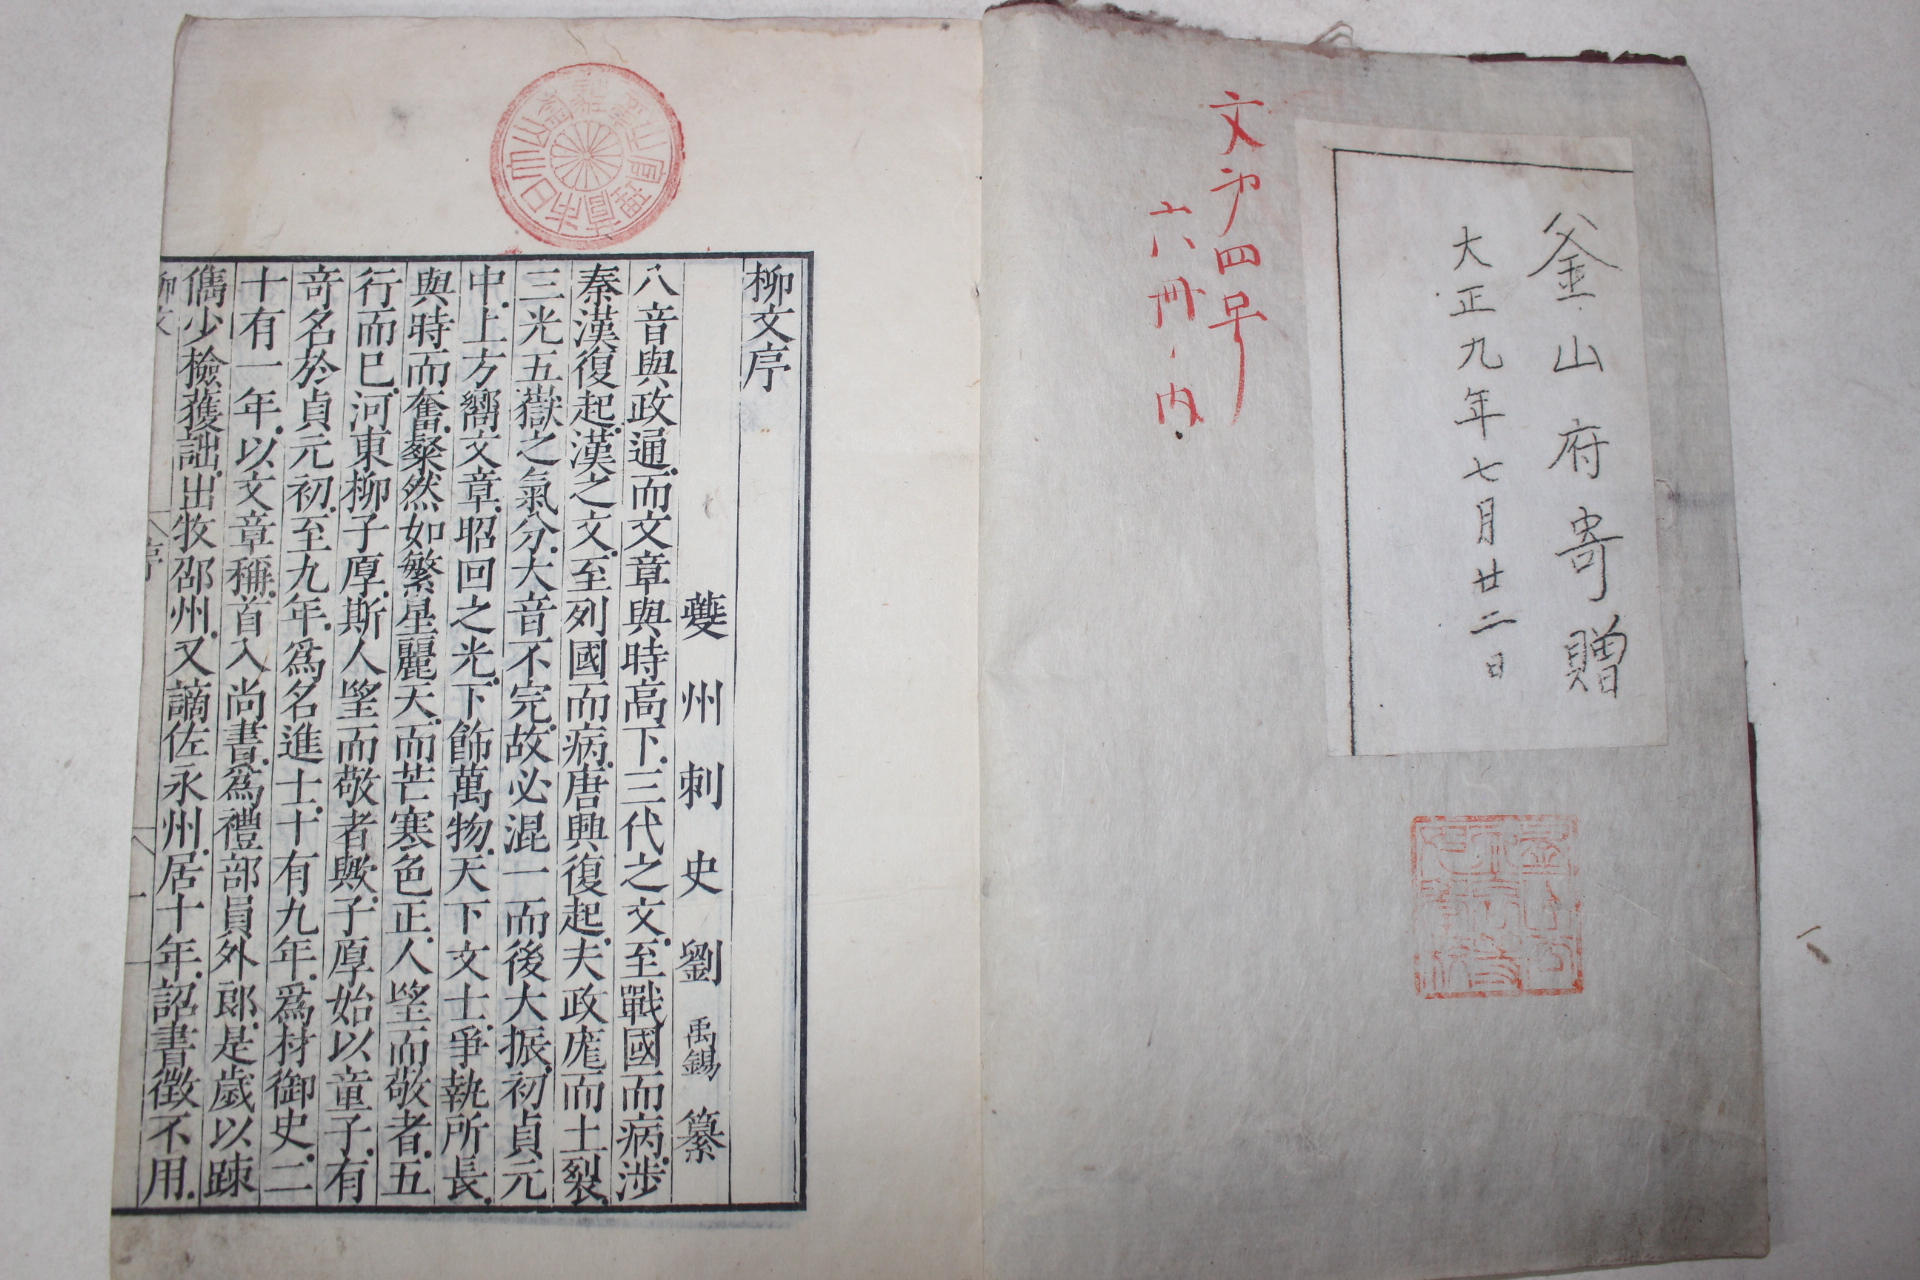 釜山府寄贈
大正九年七月廿二日
文部四号
六冊ノ内
柳文序
夔州刺史劉禹錫纂
八音與政通而文章與時高下三代之文至戰國而病涉
秦漢復起漢之文至列國而病唐興復起夫政厖而土裂
三光五嶽之氣分大音不完故必混一而後大振初貞元
中上方嚮文章昭回之光下飾萬物天下文士爭執所長
與時而奮粲然如繁星麗天而芒寒色正人望而敬者五
行而已河東柳子厚斯人望而敬者歟子厚始以童子有
奇名於貞元初至九年爲名進士十有九年爲材御史二
十有一年以文章稱首入尚書爲禮部員外郎是歲以疎
儁少檢獲訕出牧邵州又謫佐永州居十年詔書徵不用
柳文
序
一